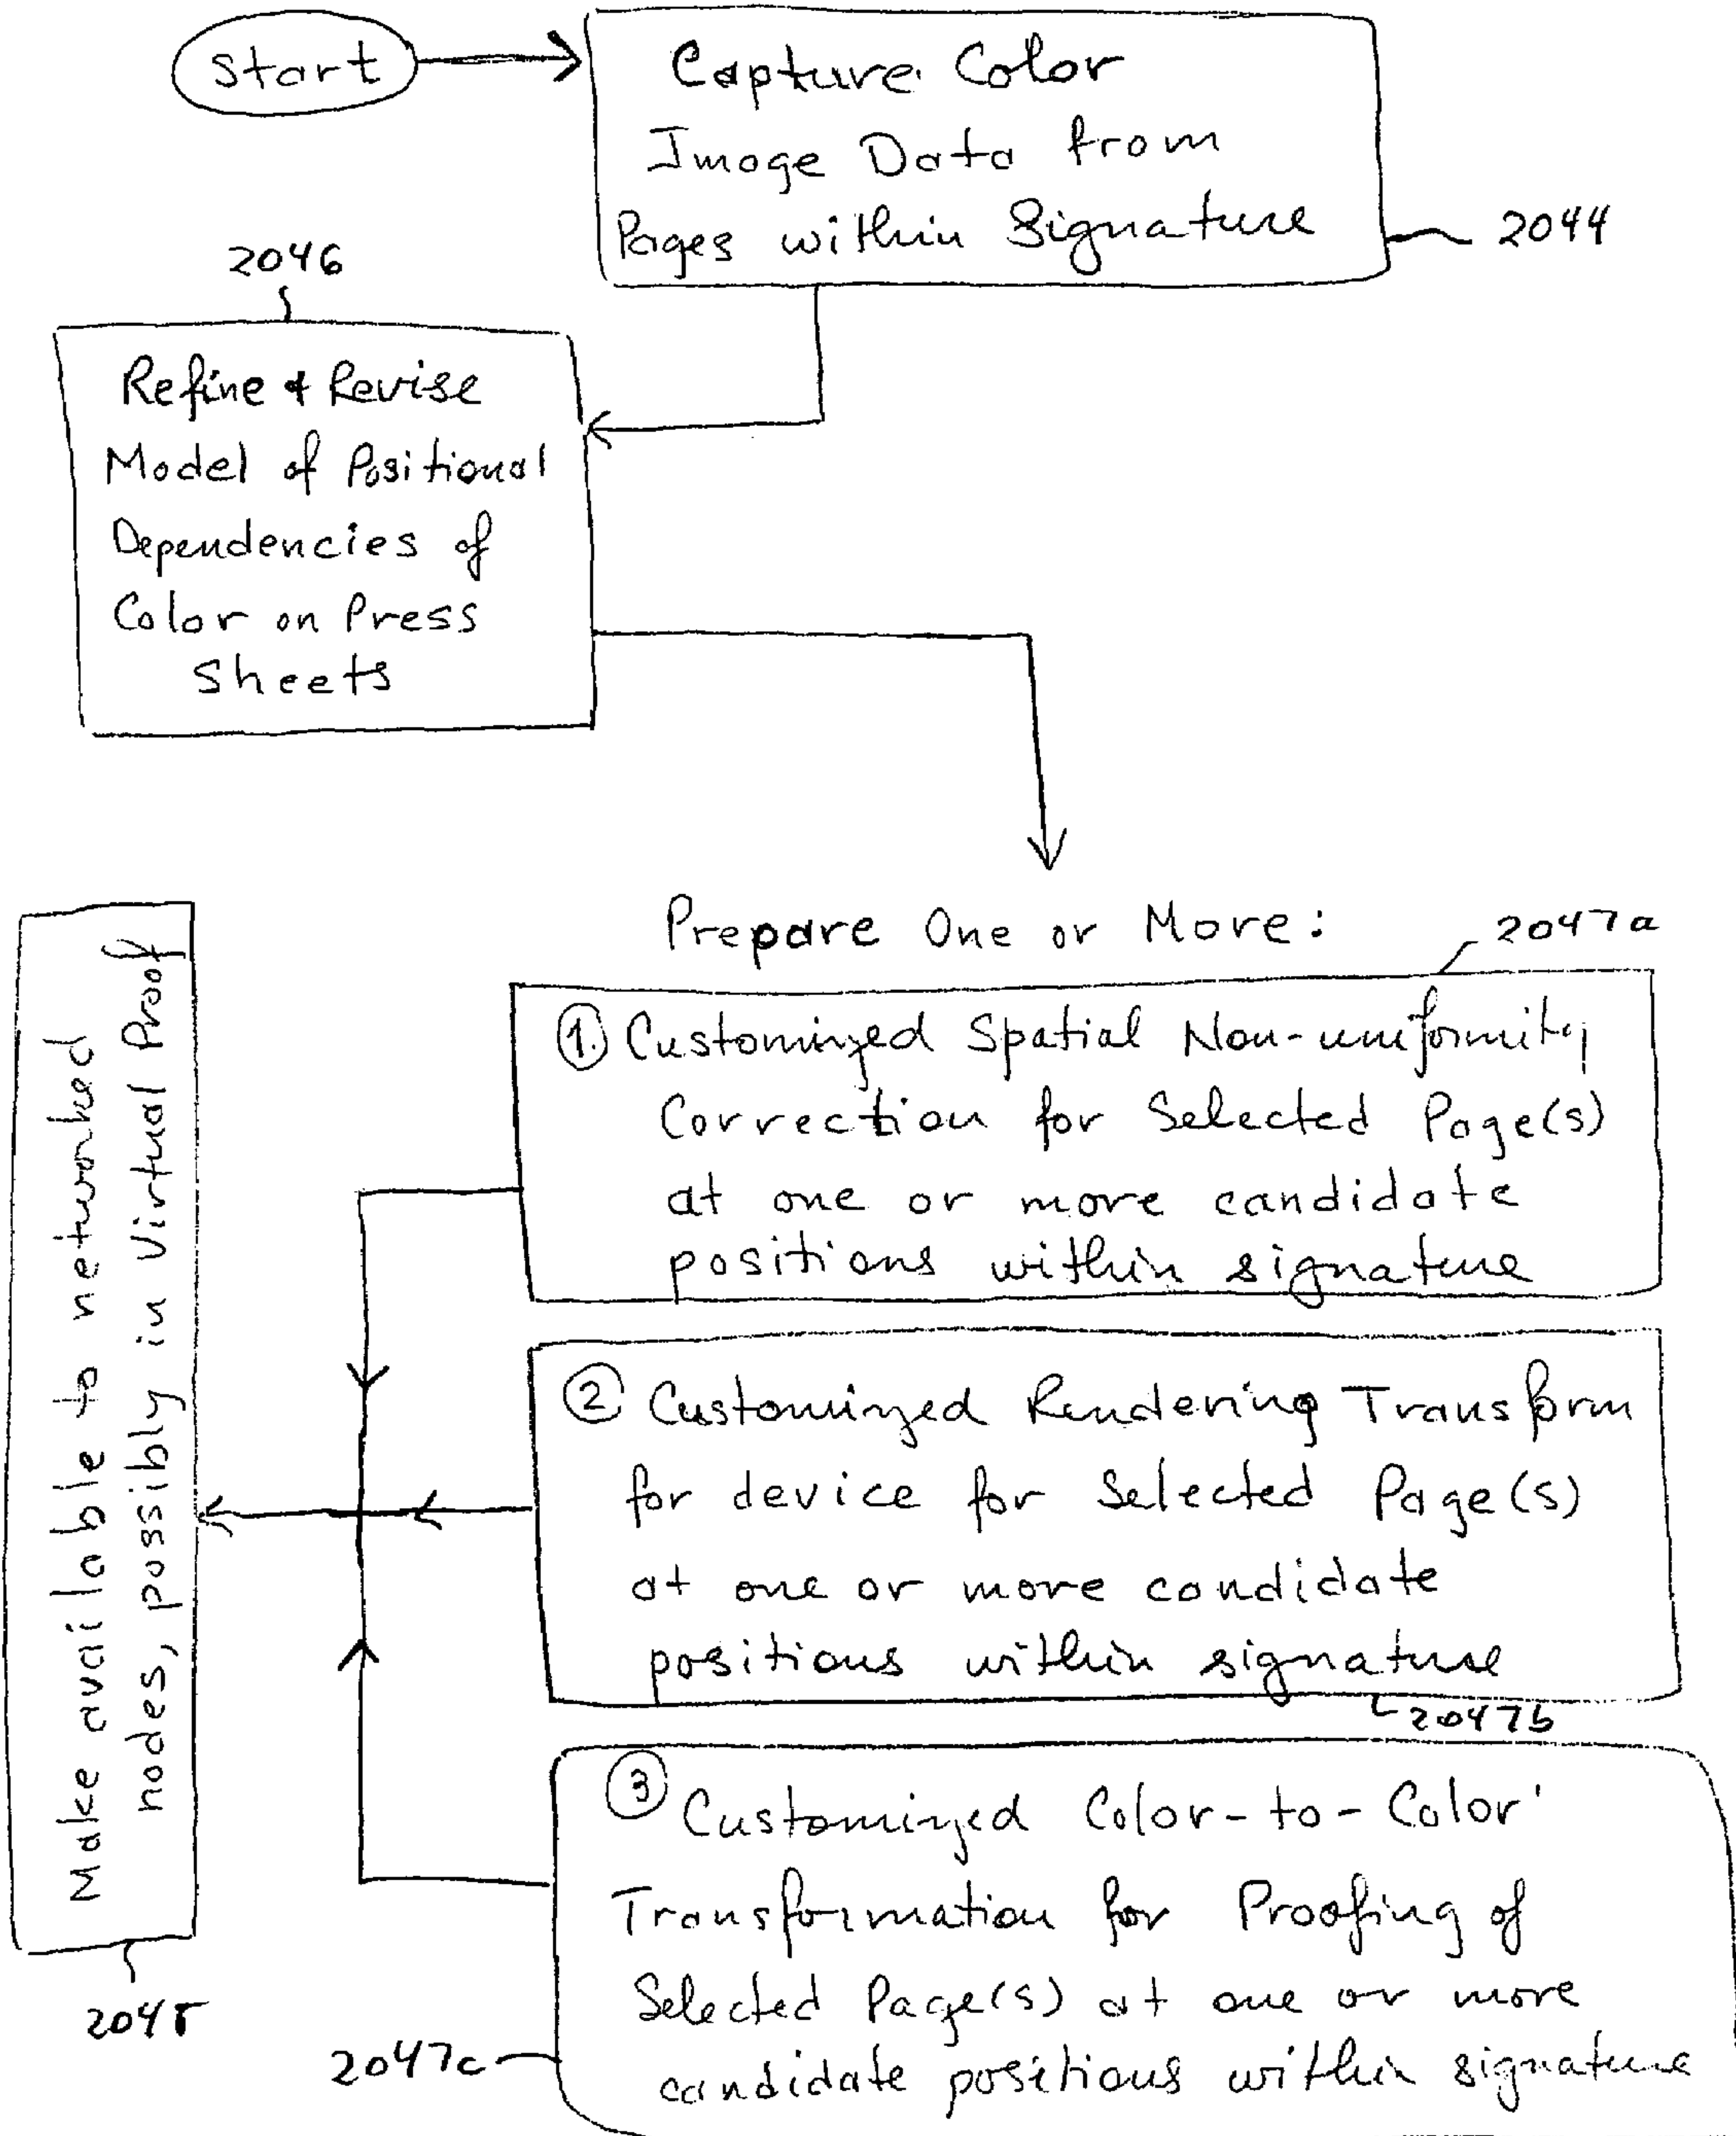 Start
Capture Color
Image Data from
Pages within Signature
2044
2046
Refine & Revise
Model of Positional
Dependencies of
Color on Press
Sheets
Prepare One or More:
2047a
1. Customized Spatial Non-uniformity
Correction for Selected Page(s)
at one or more candidate
positions within signature
2 Customized Rendering Transform
for device for Selected Page(s)
at one or more candidate
positions within signature
2047b
3 Customized Color-to-Color'
Transformation for Proofing of
Selected Page(s) at one or more
candidate positions within signature
2047c
Make available to networked
nodes, possibly in Virtual Proof